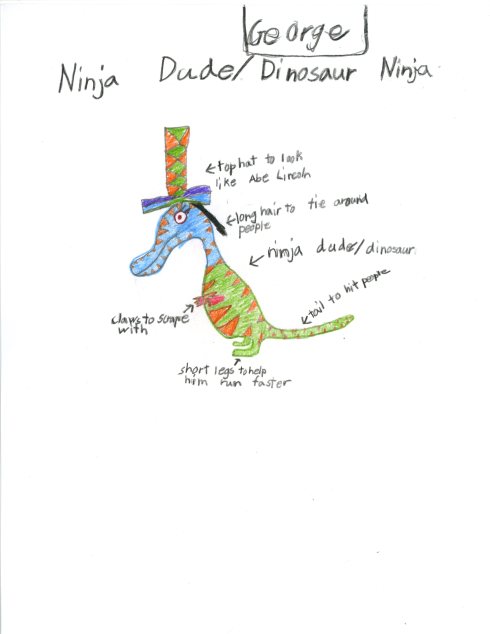 George
Ninja Dude/Dinosaur Ninja
top hat to look
like Abe Lincoln
long hair to tie around
people
ninja dude/dinosaur
tail to hit people
claws to scrape
with
short legs to help
him run faster